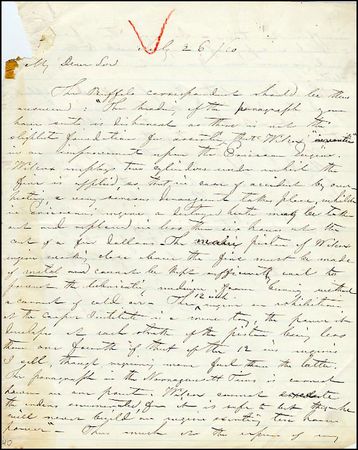 July 26/60
My Dear Sir
The Buffalo correspondent should be thus
answered: "The heading of the paragraph you
have sent is dishonest as there is not the
slightest foundation for asserting that Wilcox "
is an improvement upon the Ericsson engine.
Wilcox employs two cylinders under which the
fire is applied, so that in case of accident by over
heating, a very serious derangement takes place, while in
Ericsson engine a heater may be taken
out and replaced in less than an hour at the
cost of a few dollars. The main piston of Wilcox
engine working close above the fire must be made
of metal and cannot be kept sufficiently cool to
prevent the lubricating medium from burning without
a current of cold air. The 12 inch engine on exhibition
at the Cooper Institute is a mere toy, the power it
develops at each stroke of the piston being less
than one fourth of that of the 12 in engine
I sell, though requiring more fuel than the latter.
The paragraph in the Narragansett Times is correct
however on one point. Wilcox cannot exceed
the inches enumerated, for it is safe to bet that he
will never build an engine exerting two horse
power" — Thus much for the